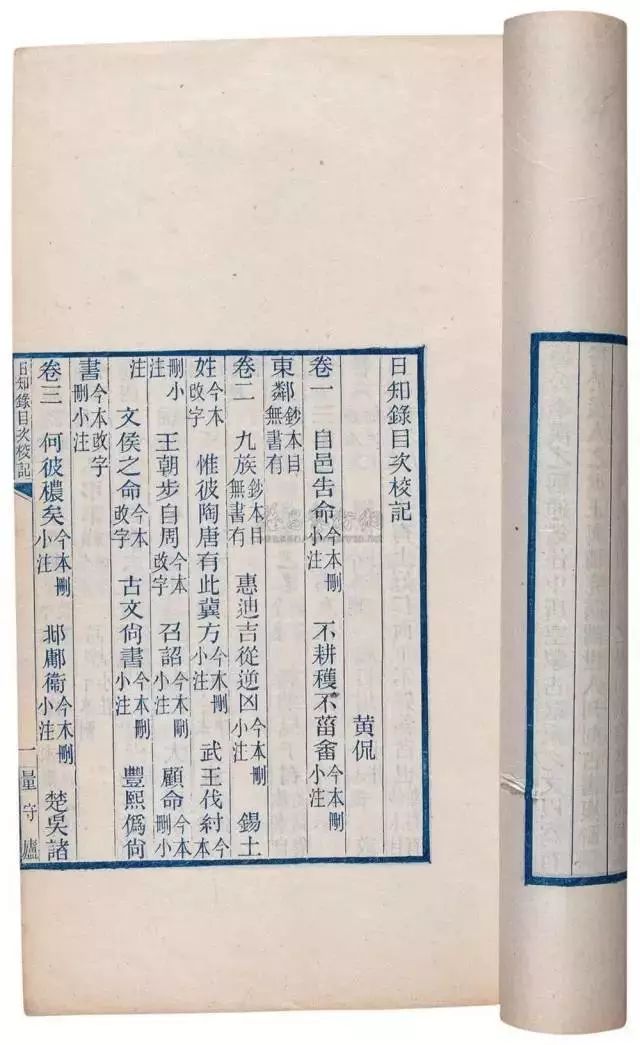 日知錄目次校記
黄侃
卷一 自邑告命今本刪小注 不耕穫不菑畬今本刪小注
東鄰鈔本目無書有
卷二 九族鈔本目無書有 惠迪吉從逆凶今本刪小注 錫土
姓今本改字 惟彼陶唐有此冀方今本刪小注 武王伐紂今本
刪小注 王朝步自周今本改字 召誥今本刪小注 顧命今本刪小
注 文侯之命今本改字 古文尙書今本刪小注 豐熙僞尙
書今本改字刪小注
卷三 何彼穠矣今本刪小注 邶鄘衞今本刪小注 楚吳諸
日知錄目次校記 一 量守廬